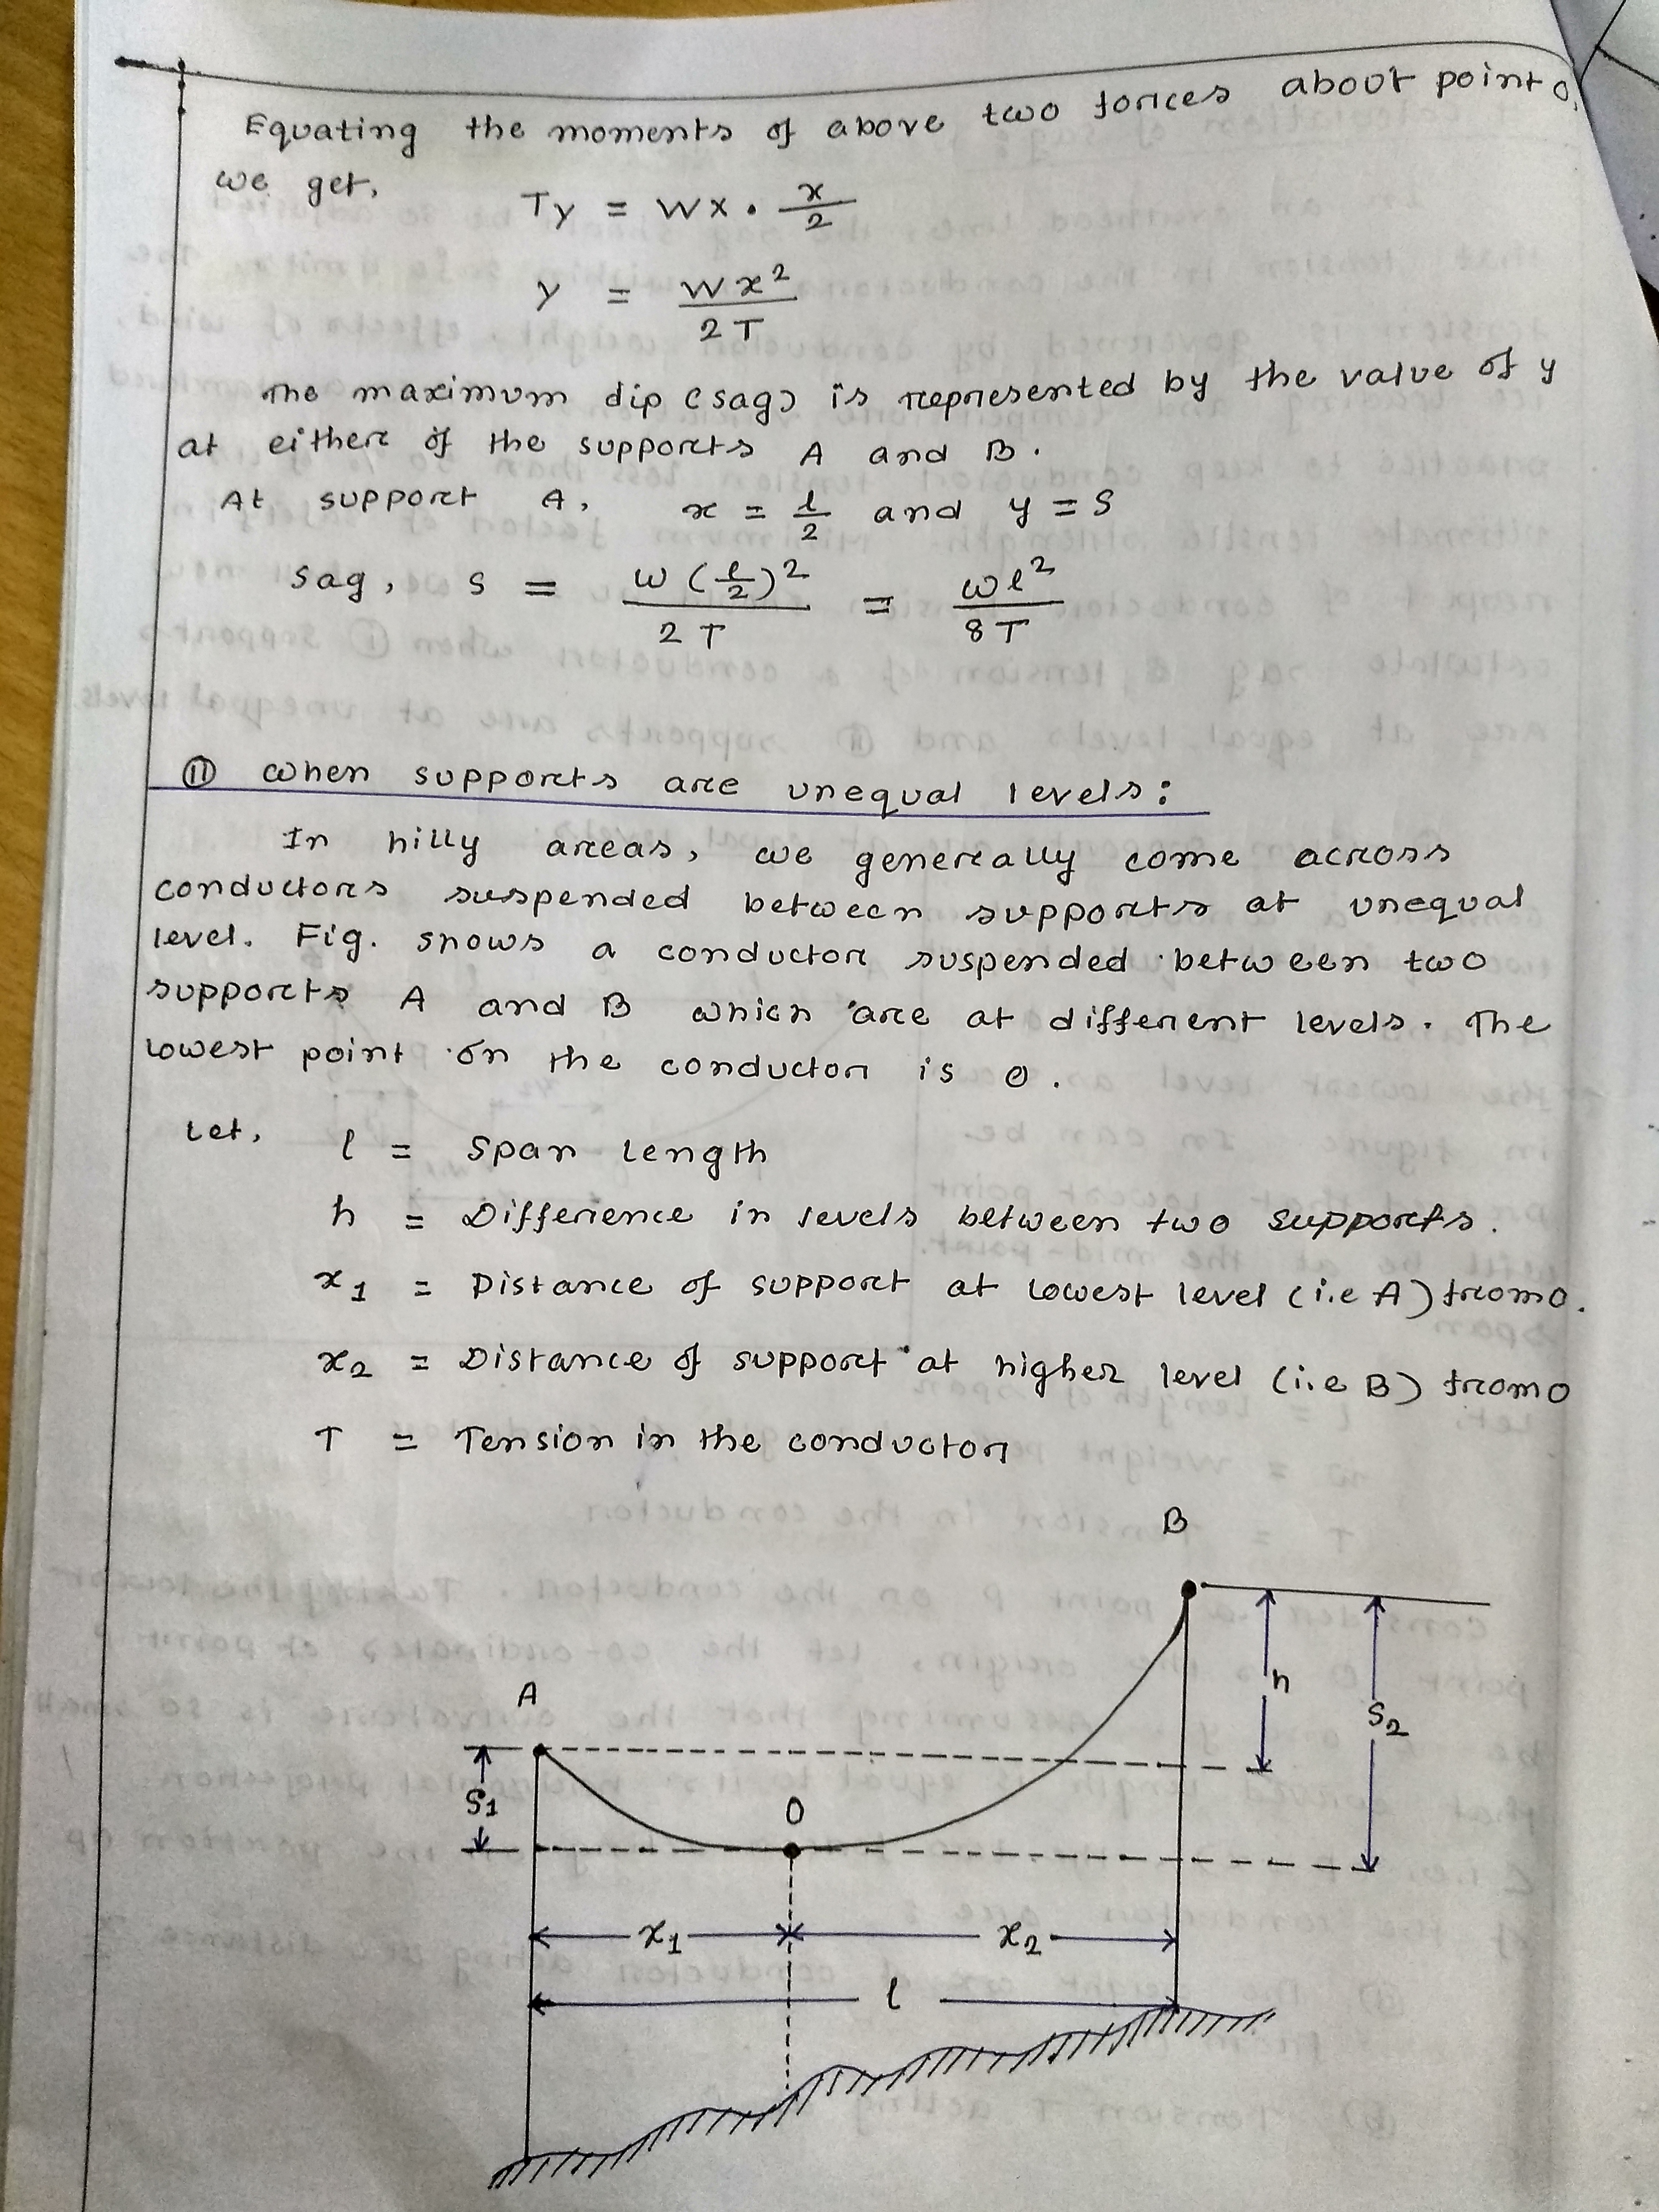 Equating the moments of above two forces about point O,
we get,
Ty = wx . x/2
y = wx²/2T
The maximum dip (sag) is represented by the value of y
at either of the supports A and B.
At support A, x = l/2 and y = S
Sag, S = w(l/2)²/2T = wl²/8T
(ii) When supports are unequal levels:
In hilly areas, we generally come across
conductors suspended between supports at unequal
level. Fig. shows a conductor suspended between two
supports A and B which are at different levels. The
lowest point on the conductor is O.
Let,
l = Span Length
h = Difference in levels between two supports.
x₁ = Distance of support at lowest level (i.e A) from O.
x₂ = Distance of support at higher level (i.e B) from O
T = Tension in the conductor
B
h
S₂
A
S₁
O
x₁
x₂
l